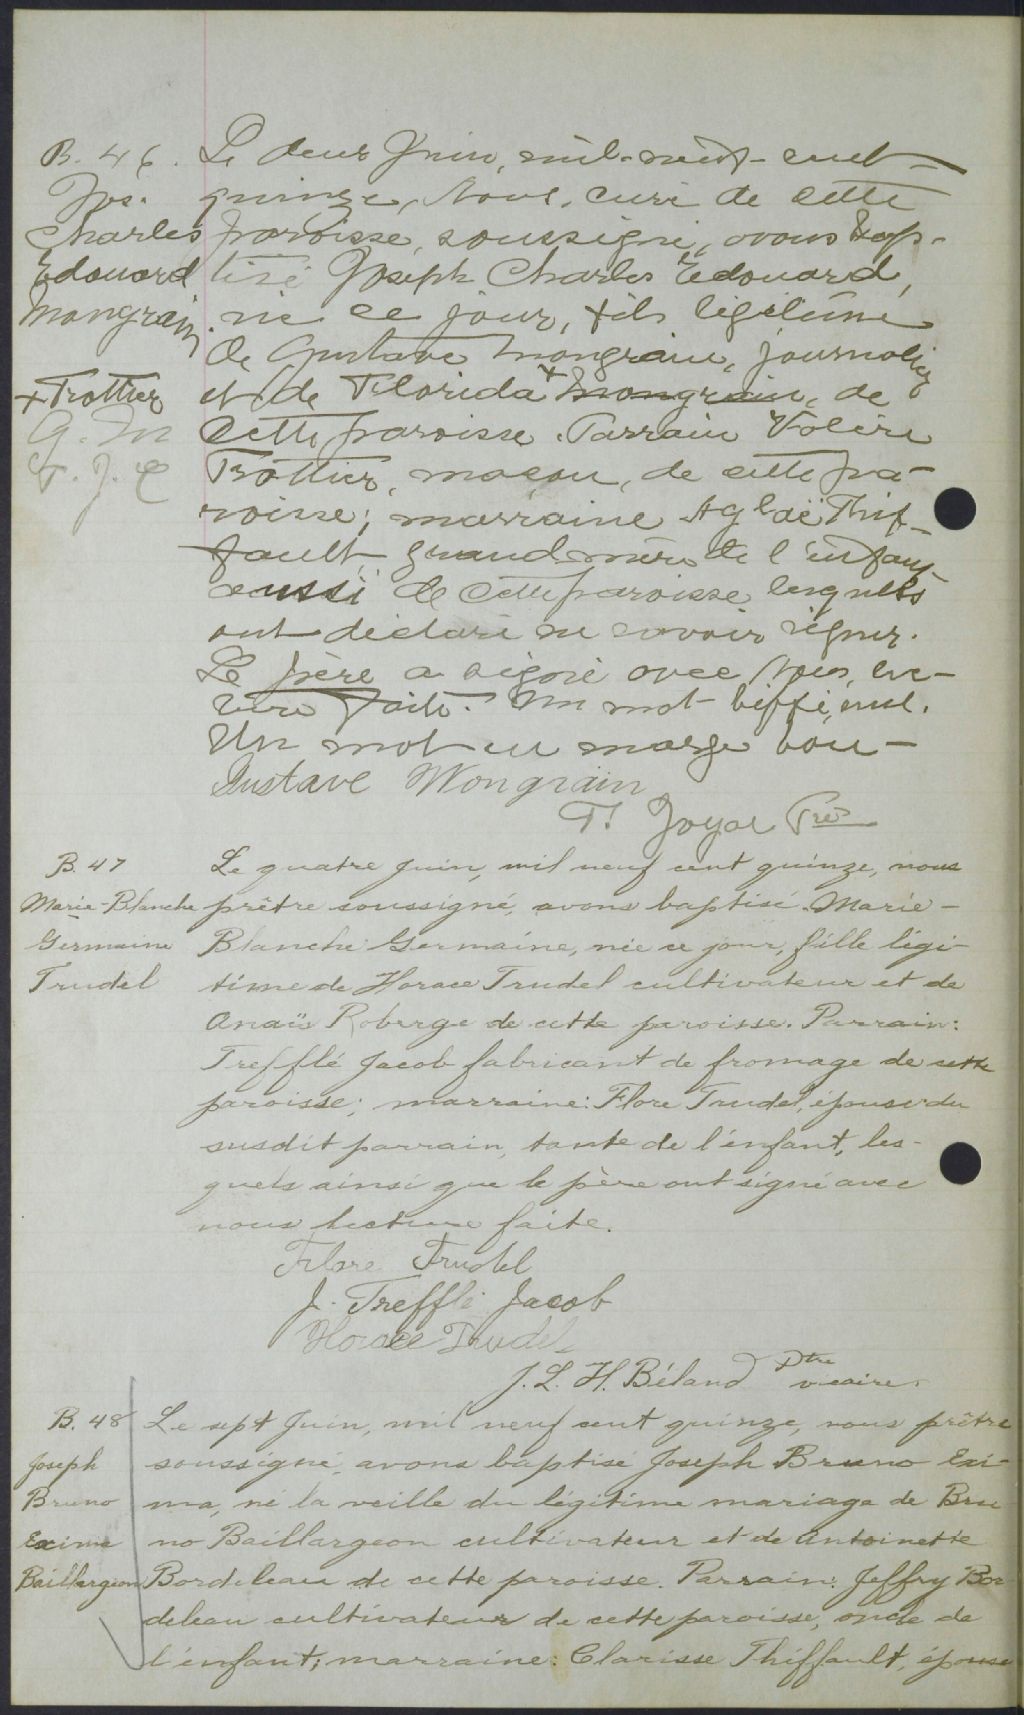 B. 46.
Jos.
Charles
Edouard
Mongrain
+ Trottier
G. M
T. J. P
Le deux Juin, mil-neuf-cent-
quinze, Nous, curé de cette
paroisse, soussigné, avons bap-
tisé Joseph Charles Edouard,
né ce jour, fils légitime
de Gustave Mongrain, journalier
et de Florida + Mongrain, de
cette paroisse. Parrain Valère
Trottier, maçon, de cette pa-
roisse; marraine Aglaë Thif-
fault, grand'mère de l'enfant
aussi de cette paroisse lesquels
ont déclaré ne savoir signer.
Le père a signé avec Nous, lec-
ture faite. Un mot biffé, nul.
Un mot en marge bon-
Gustave Mongrain
T. Joyal Ptre
B. 47
Marie-Blanche
Germaine
Trudel
Le quatre Juin, mil neuf cent quinze, nous
prêtre soussigné, avons baptisé Marie-
Blanche Germaine, née ce jour, fille légi-
time de Horace Trudel cultivateur et de
Anaïs Roberge de cette paroisse. Parrain:
Trefflé Jacob fabricant de fromage de cette
paroisse; marraine: Flore Trudel, épouse du
susdit parrain, tante de l'enfant, les-
quels ainsi que le père ont signé avec
nous lecture faite.
Flore Trudel
J. Trefflé Jacob
Horace Trudel
J. L. H. Béland Ptre
vicaire.
B. 48
Joseph
Bruno
Exime
Baillargeon
Le sept Juin, mil neuf cent quinze, nous prêtre
soussigné, avons baptisé Joseph Bruno Exi-
ma, né la veille du légitime mariage de Bru-
no Baillargeon cultivateur et de Antoinette
Bordeleau de cette paroisse. Parrain: Jeffry Bor-
deleau cultivateur de cette paroisse, oncle de
l'enfant; marraine: Clarisse Thiffault, épouse